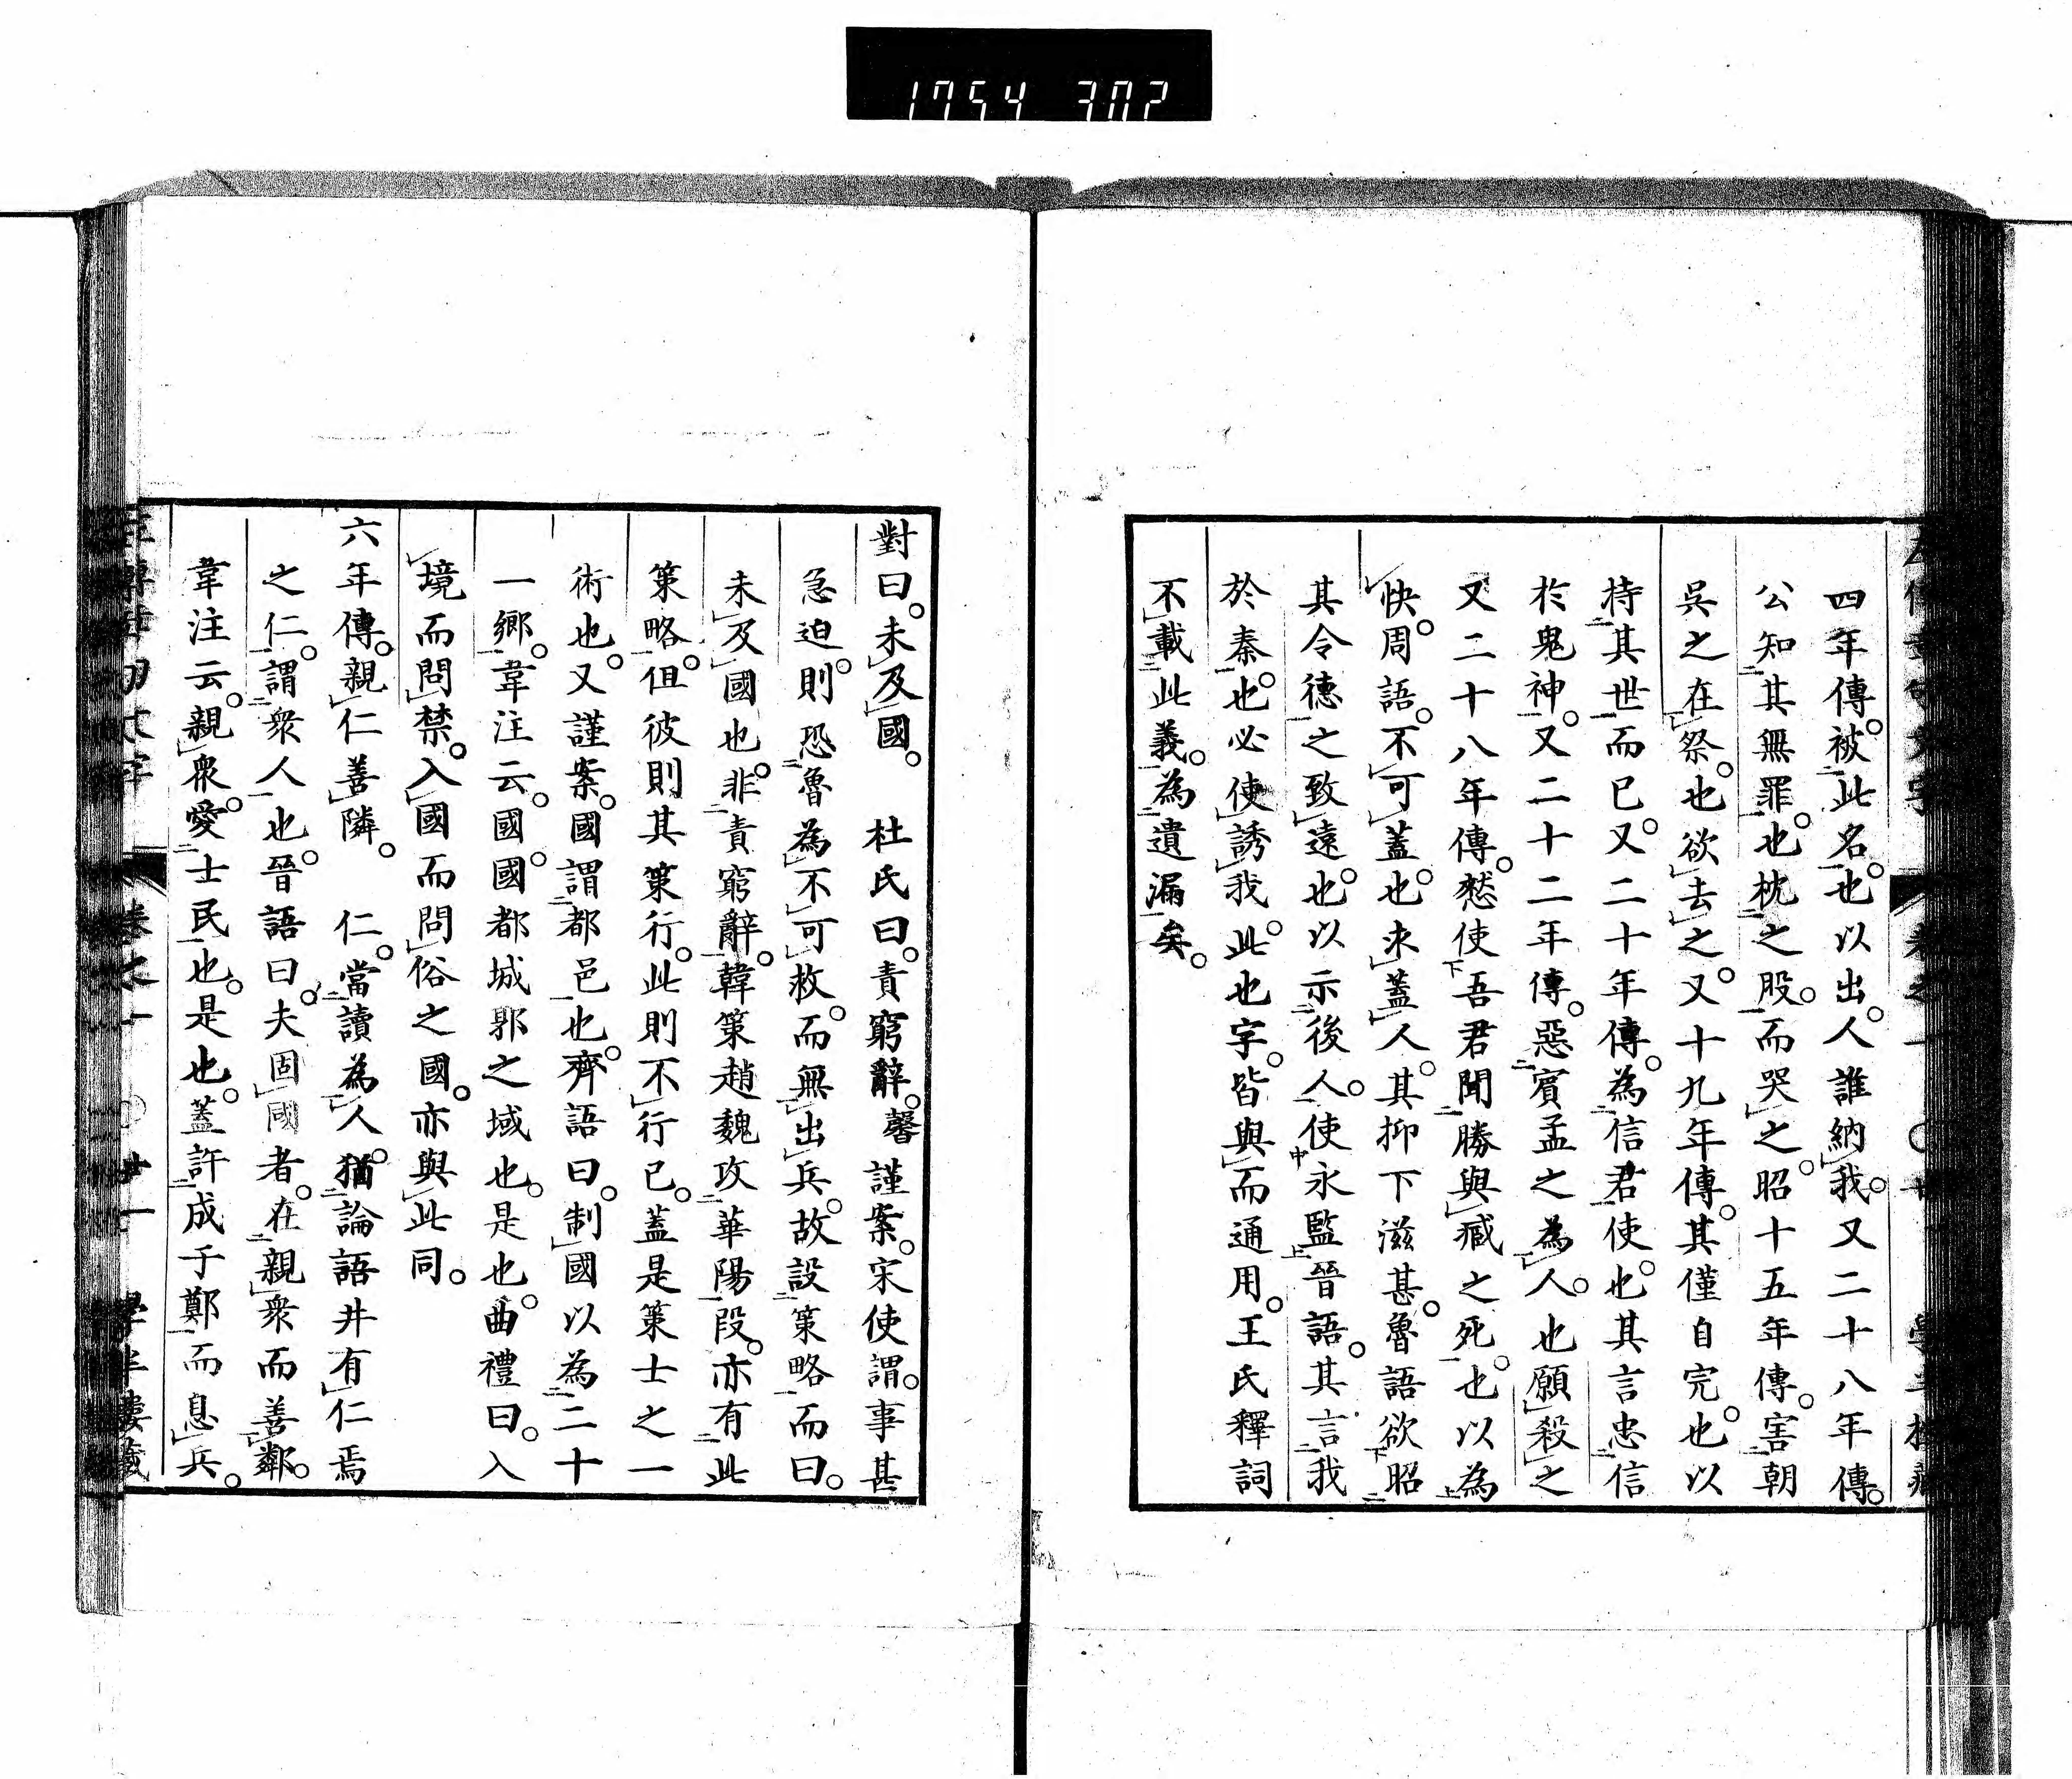 1754 302
四年傳。被此名。也以出。人誰納我。又二十八年傳。
公知其無罪。也枕之股。而哭之。昭十五年傳。害朝
吳之在祭。也欲去之。又十九年傳。其僅自完。也以
持其世而已。又二十年傳。為信君使。也其言忠信
於鬼神。又二十二年傳。惡賓孟之為人。也願殺之
又二十八年傳。憖使吾君聞勝與臧之死。也以為
快。周語。不可蓋也。求蓋人。其抑下滋甚。魯語欲昭
其令德之致遠。也以示後人。使永監晉語。其言我
於秦。也必使誘我。此也字。皆與而通用。王氏釋詞
不載此義。為遺漏矣。
對曰。未及國。 杜氏曰。責窮辭。馨謹案。宋使謂。事甚
急迫。則恐魯為不可救。而無出兵。故設策略而曰。
未及國也。非責窮辭。韓策趙魏攻華陽段。亦有此
策略。但彼則其策行。此則不行已。蓋是策士之一
術也。又謹案。國謂都邑也。齊語曰。制國以為二十
一鄉。韋注云。國。國都城郭之域也。是也。曲禮曰。入
境而問禁。入國而問俗之國。亦與此同。
六年傳。親仁善隣。 仁。當讀為人。猶論語井有仁焉
之仁。謂衆人也。晉語曰。夫固國者。在親衆而善鄰。
韋注云。親衆。愛士民也。是也。蓋許成于鄭而息兵。
卷之一 廿一